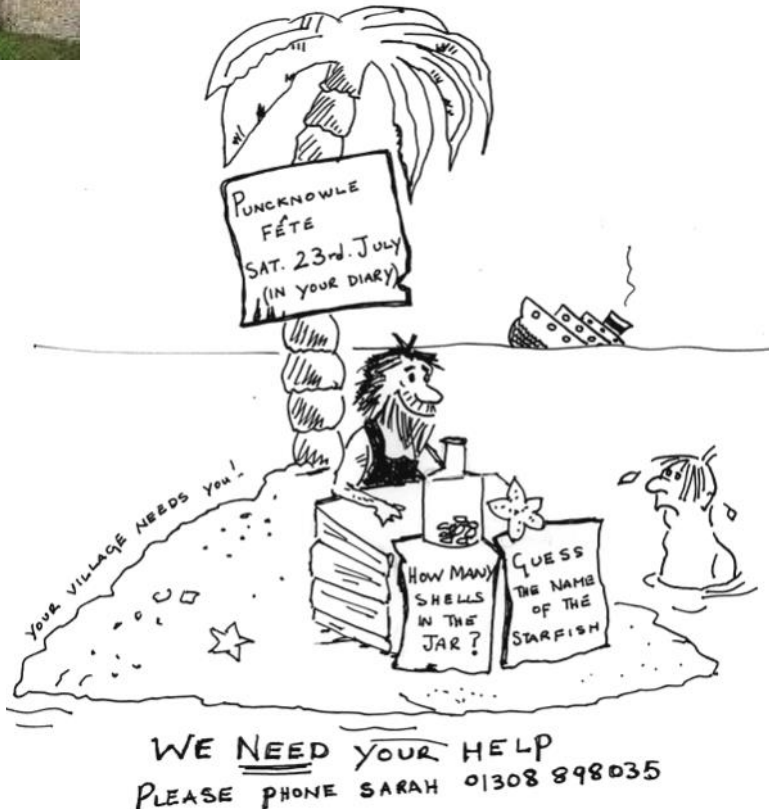 PUNCKNOWLE
FÊTE
SAT. 23rd. JULY
(IN YOUR DIARY)
YOUR VILLAGE NEEDS YOU!
HOW MANY
SHELLS
IN THE
JAR?
GUESS
THE NAME
OF THE
STARFISH
WE NEED YOUR HELP
PLEASE PHONE SARAH 01308 898035